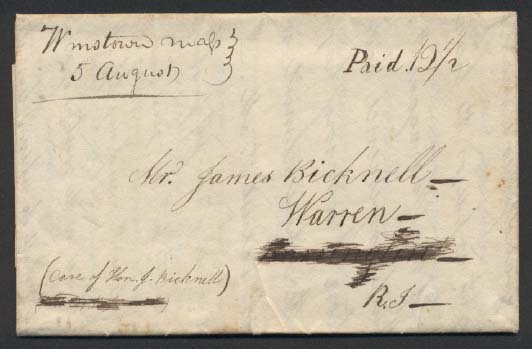 Wmstown mass
5 August
Paid 12 1/2
Mr. James Bicknell
Warren
R.I
(Care of Hon. J. Bicknell)